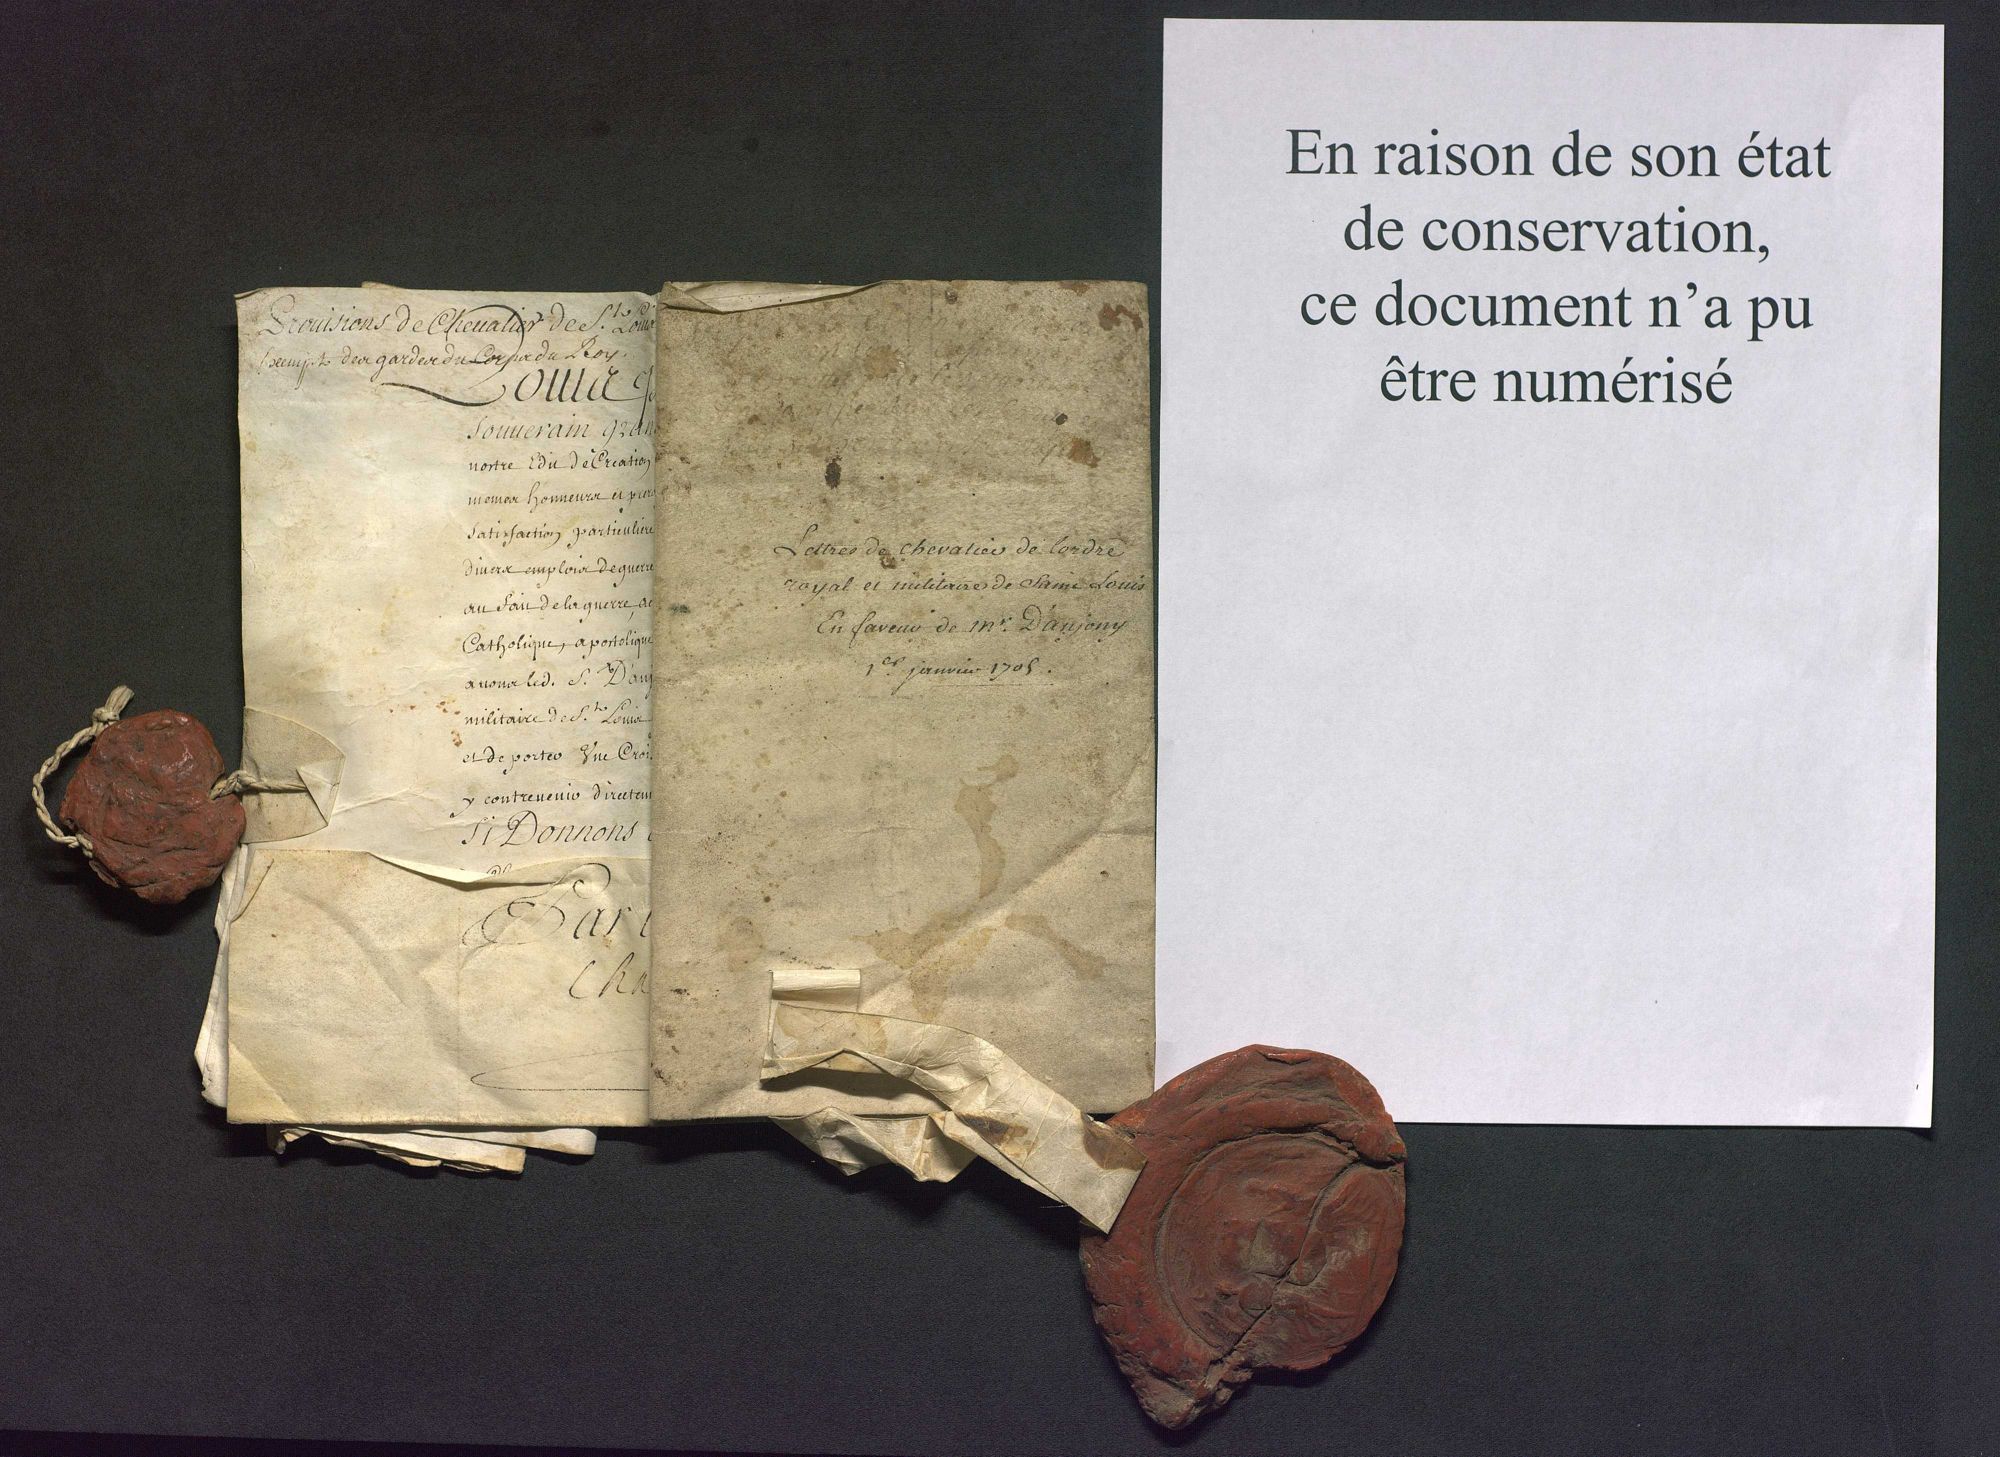 Prouisions de Cheualier de S.t Louis
Exempt des gardes du Corps du Roy.
Louis
Souuerain gran
nostre Edit de Creation
mesmes honneurs et prero
satisfaction particuliere
diuers emplois de guerre
au fait de la guerre, ac
Catholique, apostolique
auons led. S.r D'auj
militaire de S.t Louis
et de porter Vne Croix
y contreuenir directem
Si Donnons
Par l
Cha
Lettres de chevalier de lordre
royal et militaire de Saint Louis
En faveur de mr. D'aujony
1er janvier 1705.
En raison de son état
de conservation,
ce document n’a pu
être numérisé